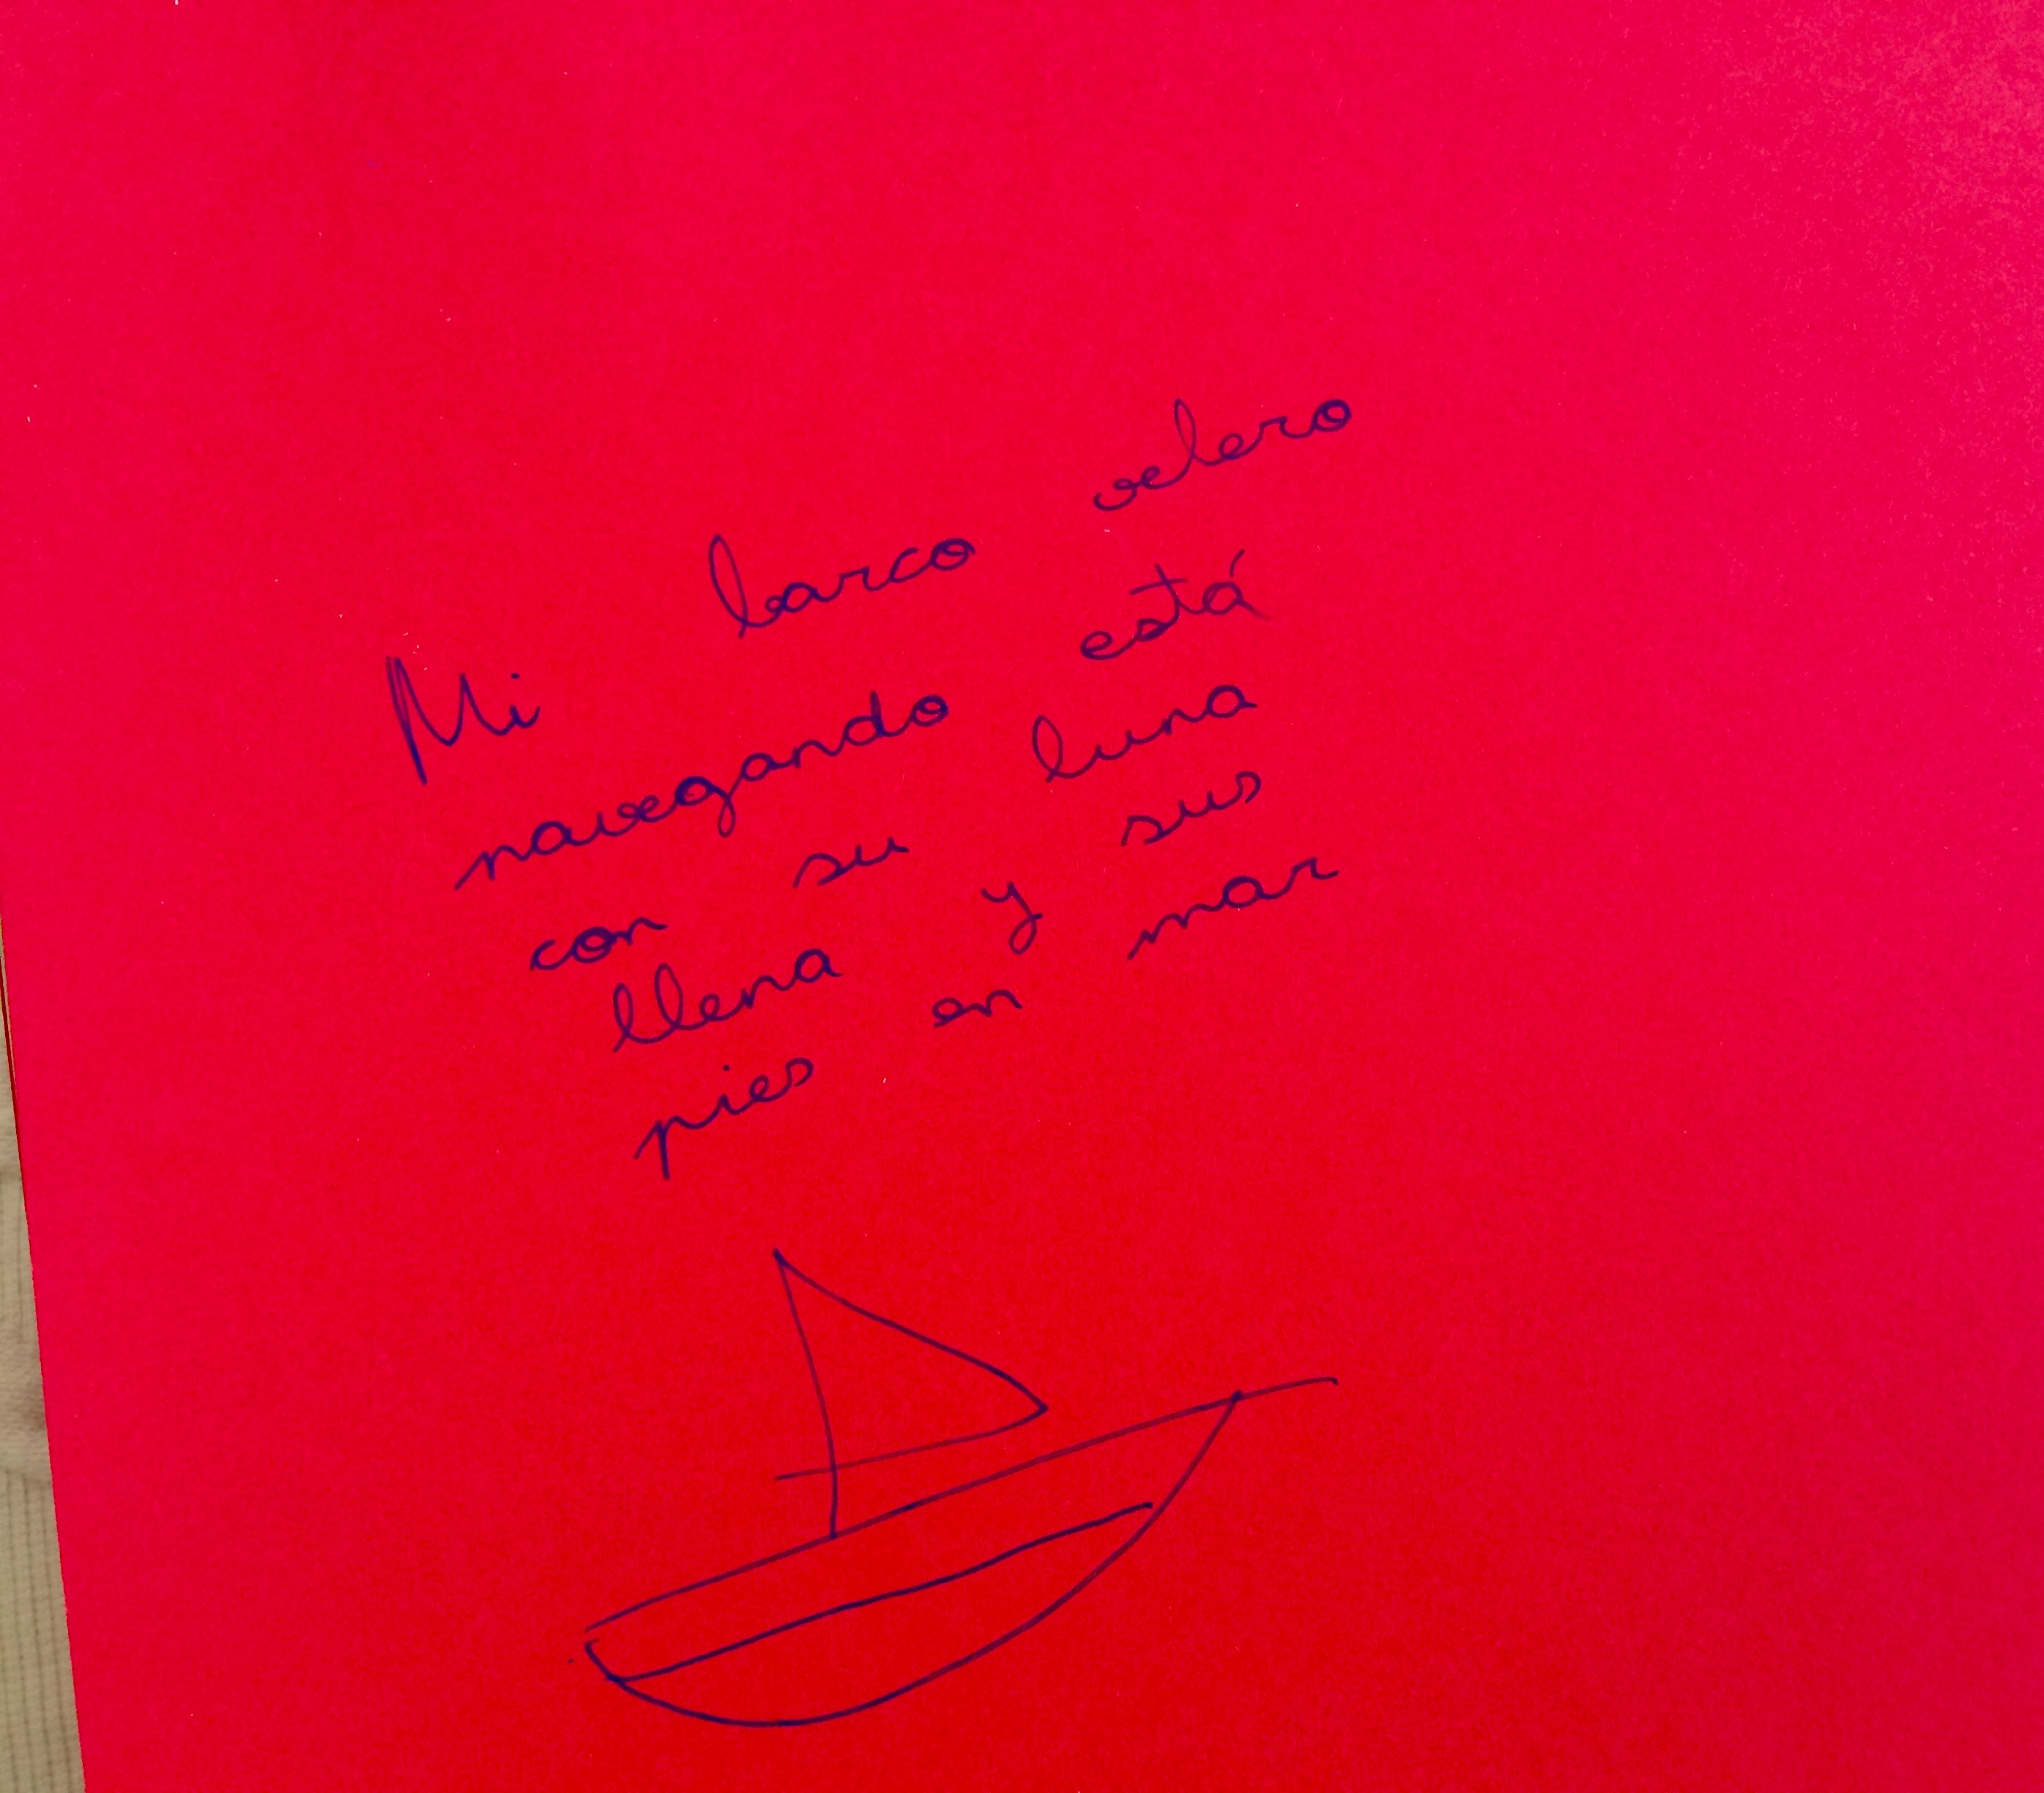 Mi barco velero
navegando está
con su luna
llena y sus
pies en mar